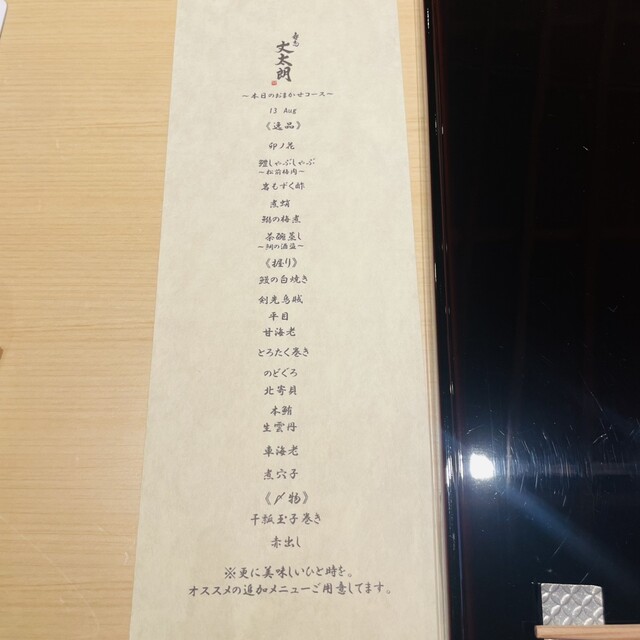 丈太朗
～本日のおまかせコース～
13 Aug
《逸品》
卯ノ花
鱧しゃぶしゃぶ
～松前梅肉～
岩もずく酢
煮蛸
鰯の梅煮
茶碗蒸し
《握り》
鰻の白焼き
剣先烏賊
平目
甘海老
とろたく巻き
のどぐろ
北寄貝
本鮪
生雲丹
車海老
煮穴子
《〆物》
干瓢玉子巻き
赤出し
※更に美味しいひと時を。
オススメの追加メニューご用意してます。